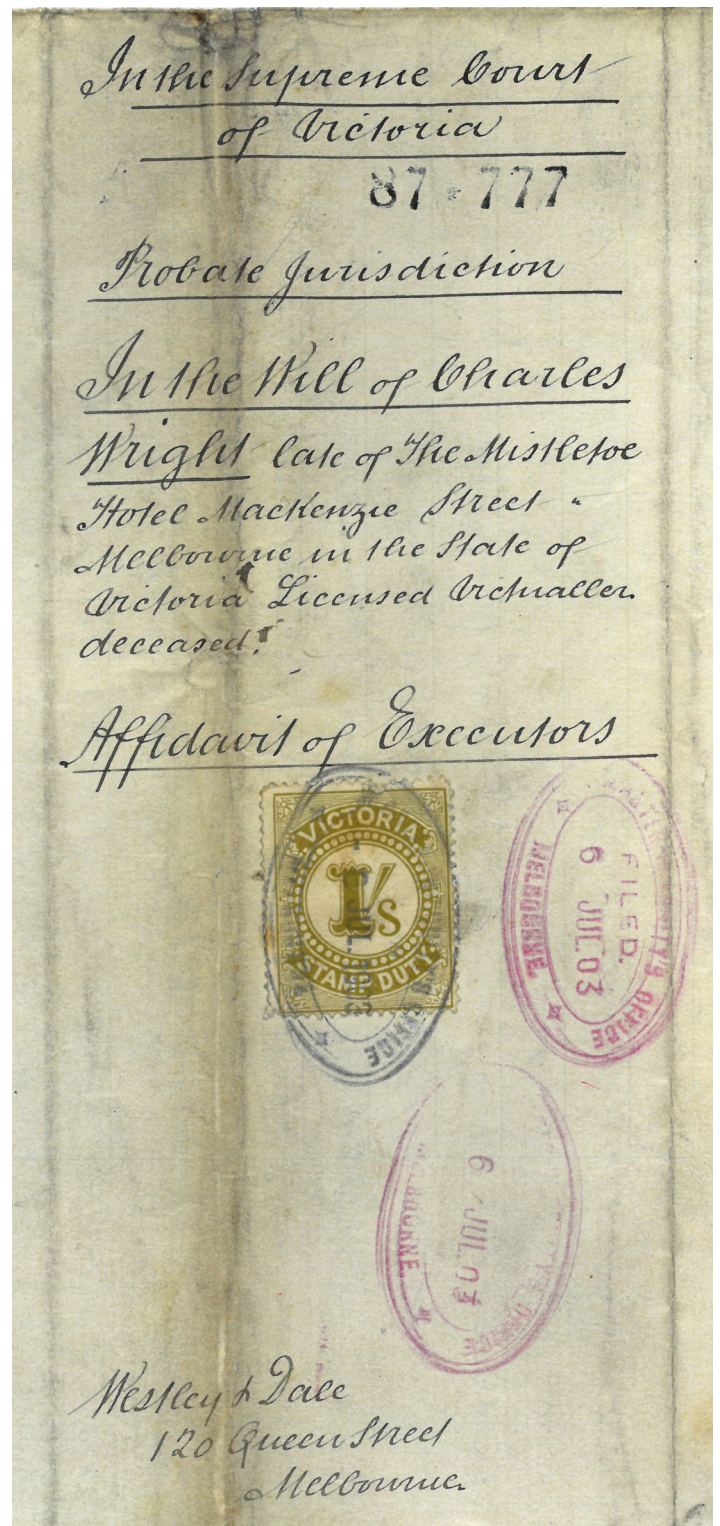 In the Supreme Court
of Victoria
87 · 777
Probate Jurisdiction
In the Will of Charles
Wright late of The Mistletoe
Hotel Mackenzie Street
Melbourne in the State of
Victoria Licensed Victualler
deceased.
Affidavit of Executors
VICTORIA
1/s
STAMP DUTY
OFFICE
OFFICE
MELBOURNE.
FILED.
6 JUL. 03
MELBOURNE.
6 JUL. 03
Westley & Dale
120 Queen Street
Melbourne